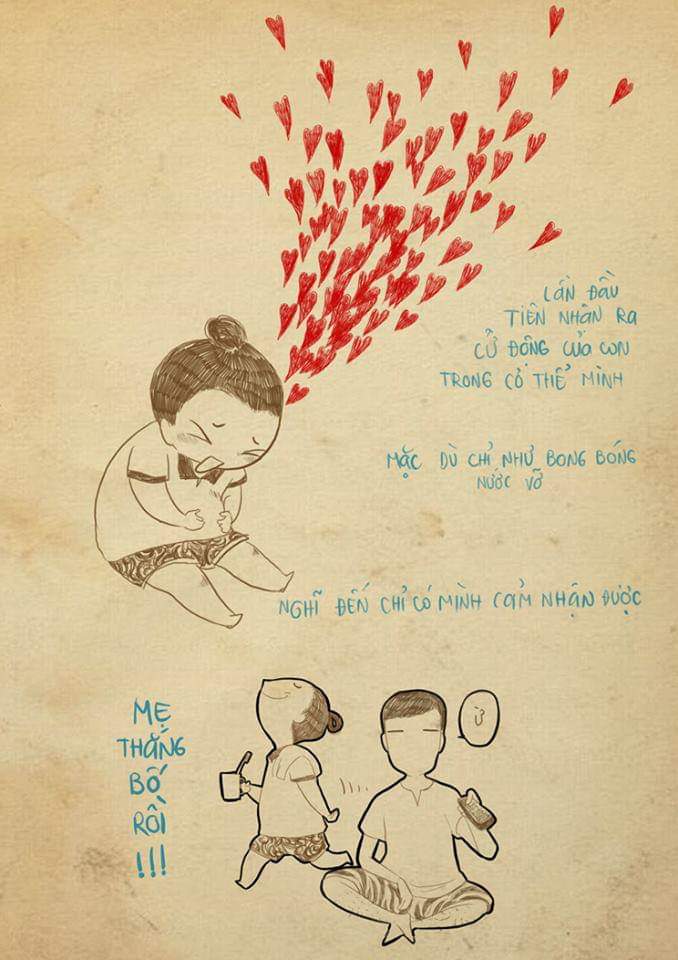 LẦN ĐẦU
TIÊN NHẬN RA
CỬ ĐỘNG CỦA CON
TRONG CƠ THỂ MÌNH
MẶC DÙ CHỈ NHƯ BONG BÓNG
NƯỚC VỠ
NGHĨ ĐẾN CHỈ CÓ MÌNH CẢM NHẬN ĐƯỢC
MẸ
THẮNG
BỐ
RỒI
!!!
Ừ